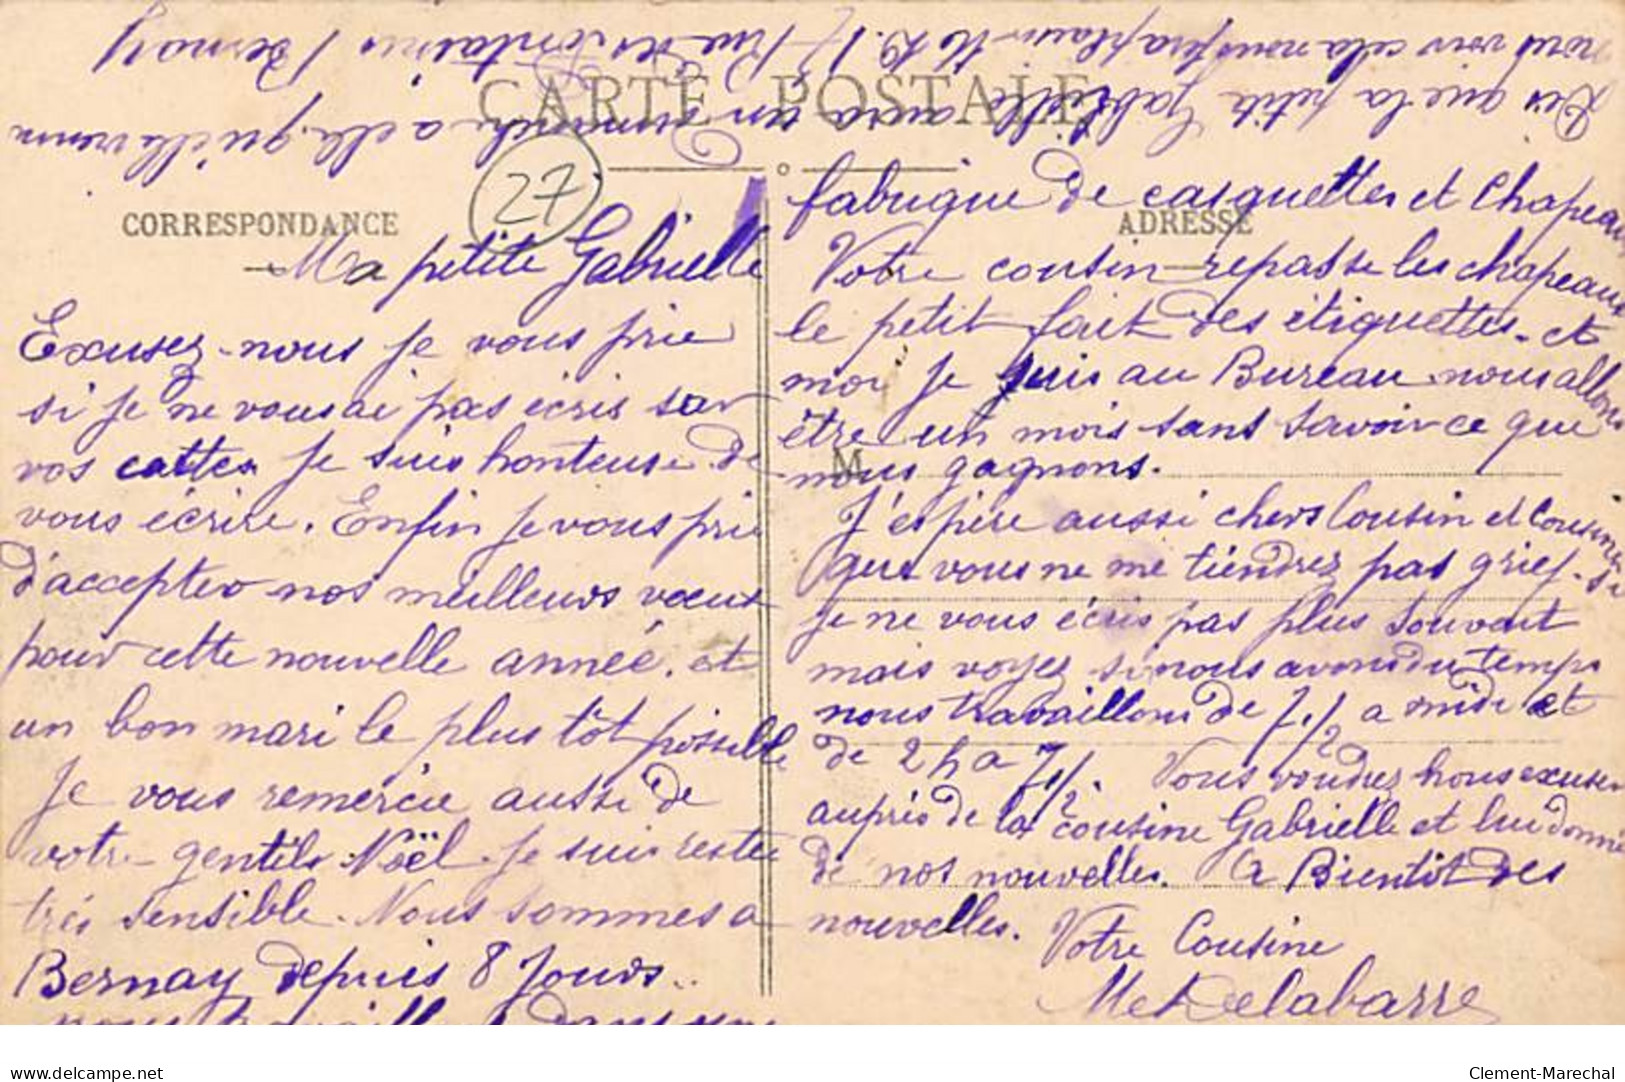 CARTE POSTALE
27
CORRESPONDANCE
ADRESSE
M
Ma petite Gabrielle
Excusez-nous je vous prie
si je ne vous ai pas écris sur
vos cattes je suis honteuse de
vous écrire. Enfin je vous prie
d'accepter nos meilleurs vœux
pour cette nouvelle année. et
un bon mari le plus tôt possible
Je vous remercie aussi de
votre gentils Noël. Je suis restée
très sensible. Nous sommes a
Bernay depuis 8 Jours..
nous travaillons dans une
fabrique de casquettes et Chapeaux
Votre cousin repasse les chapeaux
le petit fait des étiquettes. et
moi je suis au Bureau nous allons
être un mois sans savoir ce que
nous gagnons.
J'espère aussi chers Cousin et Cousine
que vous ne me tiendrez pas grief. si
je ne vous écris pas plus souvent
mais voyez si nous avons du temps
nous travaillons de 7.1/2 a midi et
de 2 h a 7 1/2. Vous voudrez nous excuser
auprès de la cousine Gabrielle et lui donné
de nos nouvelles. A Bientôt des
nouvelles. Votre Cousine
Me Delabarre
Dès que la petite Gabrielle aura un dimanche a elle qu'elle vienne
nous voir cela nous fera plaisir M D. 17 Rue des Fontaines Bernay
Clement-Marechal
delcampe.net